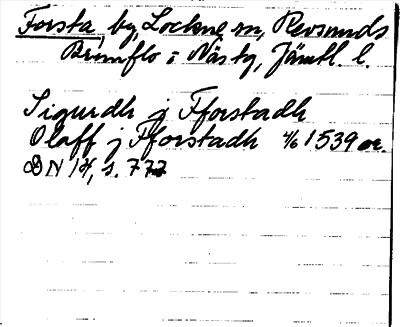 Forsta, by, Lockne sn, Revsunds
Brunflo o Näs tg, Jämtl. l.
Sigurdh j Fforstadh
Olaff j Fforstadh 4/6 1539 or.
DN 14, s. 777